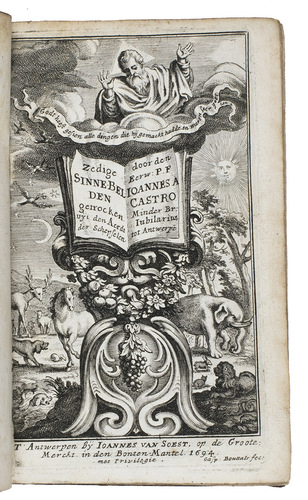 Godt heeft gesien alle dengen die hij gemaeckt hadde en waren
Zedige
SINNE-BEL
DEN
getrocken
uyt den Aerdt
der Schepselen
door den
Eerw. P. F.
IOANNES A
CASTRO
Minder Br:
Iubilarius
tot Antwerpē
T'Antwerpen By IOANNES VAN SOEST, op de Groote-
Merckt. in den Bonten-Mantel. 1694.
met Privilegie.
Bouttats fec: